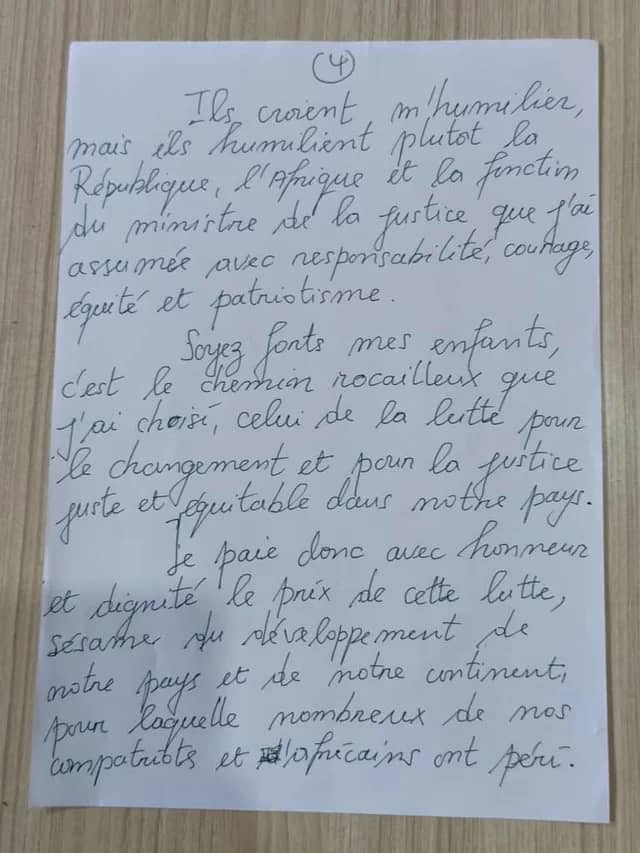 4
Ils croient m'humilier,
mais ils humilient plutot la
République, l'Afrique et la fonction
du ministre de la justice que j'ai
assumée avec responsabilité, courage,
équité et patriotisme.
Soyez forts mes enfants,
c'est le chemin rocailleux que
j'ai choisi, celui de la lutte pour
le changement et pour la justice
juste et équitable dans notre pays.
Je paie donc avec honneur
et dignité le prix de cette lutte,
sésame du développement de
notre pays et de notre continent,
pour laquelle nombreux de nos
compatriotes et d'africains ont péri.